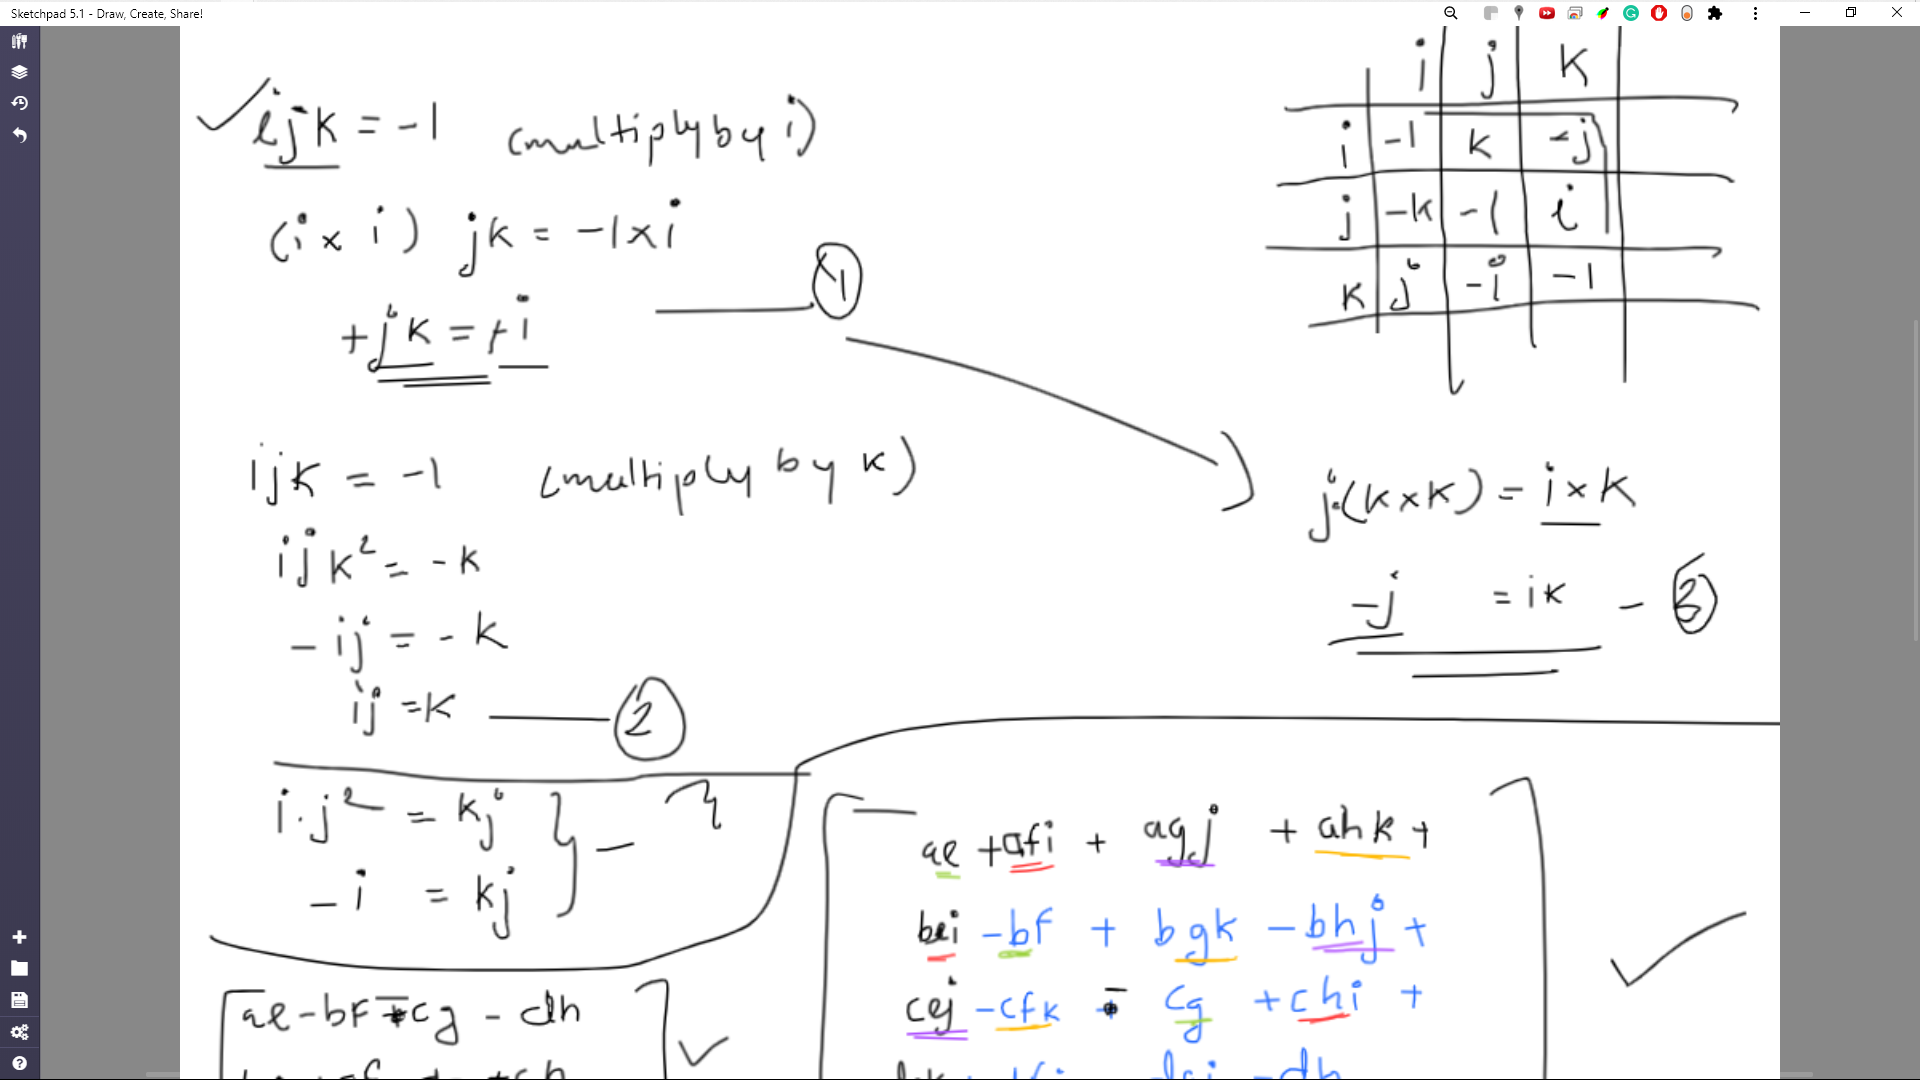 Sketchpad 5.1 - Draw, Create, Share!
ijk = -1 (multiply by i)
(i x i) jk = -1 x i
+jk = +i
1
ijk = -1 (multiply by k)
ijk² = -k
- ij = - k
ij = k
2
i.j² = kj
- i = kj
i j k
i -1 k -j
j -k -1 i
k j -i -1
j.(k x k) = i x k
-j = ik - 3
ae + afi + agj + ahk +
bei - bf + bgk - bhj +
cej - cfk - cg + chi +
ae - bf - cg - dh